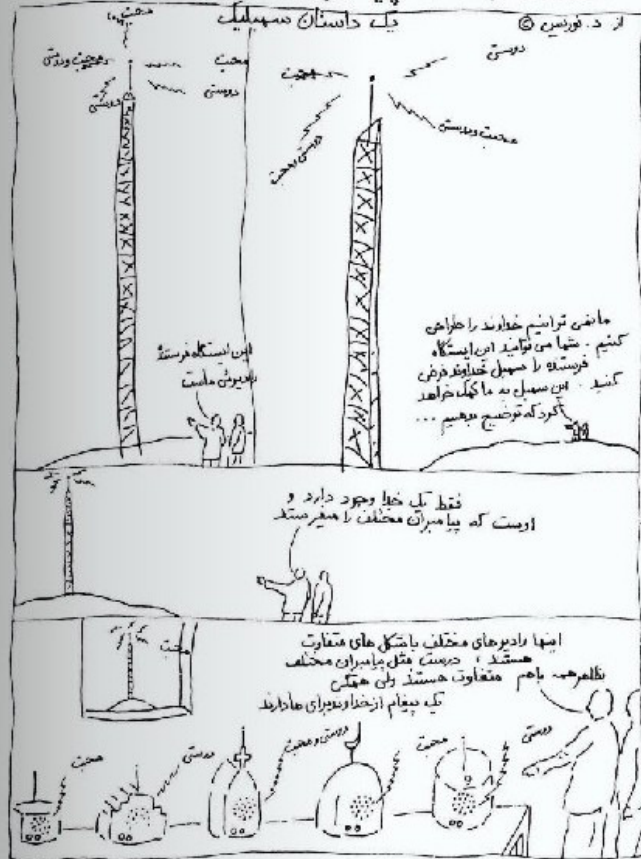 یک داستان سمبلیک
از د. فورنس ©
محبت
محبت و دوستی
محبت
دوستی
دوستی
این ایستگاه فرستنده
رادیوئی ماست
دوستی
محبت
محبت و دوستی
دوستی و محبت
ما نمی توانیم خداوند را طراحی
کنیم . شما می توانید این ایستگاه
فرستنده را سمبل خداوند فرض
کنید . این سمبل به ما کمک خواهد
کرد که توضیح بدهیم ...
فقط یک خدا وجود دارد و
اوست که پیامبران مختلف را میفرستد
محبت
اینها رادیوهای مختلف باشکل های متفاوت
هستند ، درست مثل پیامبران مختلف
بظاهر همه باهم متفاوت هستند ولی همگی
یک پیغام از خداوند برای ما دارند
محبت
دوستی
دوستی و محبت
محبت
دوستی